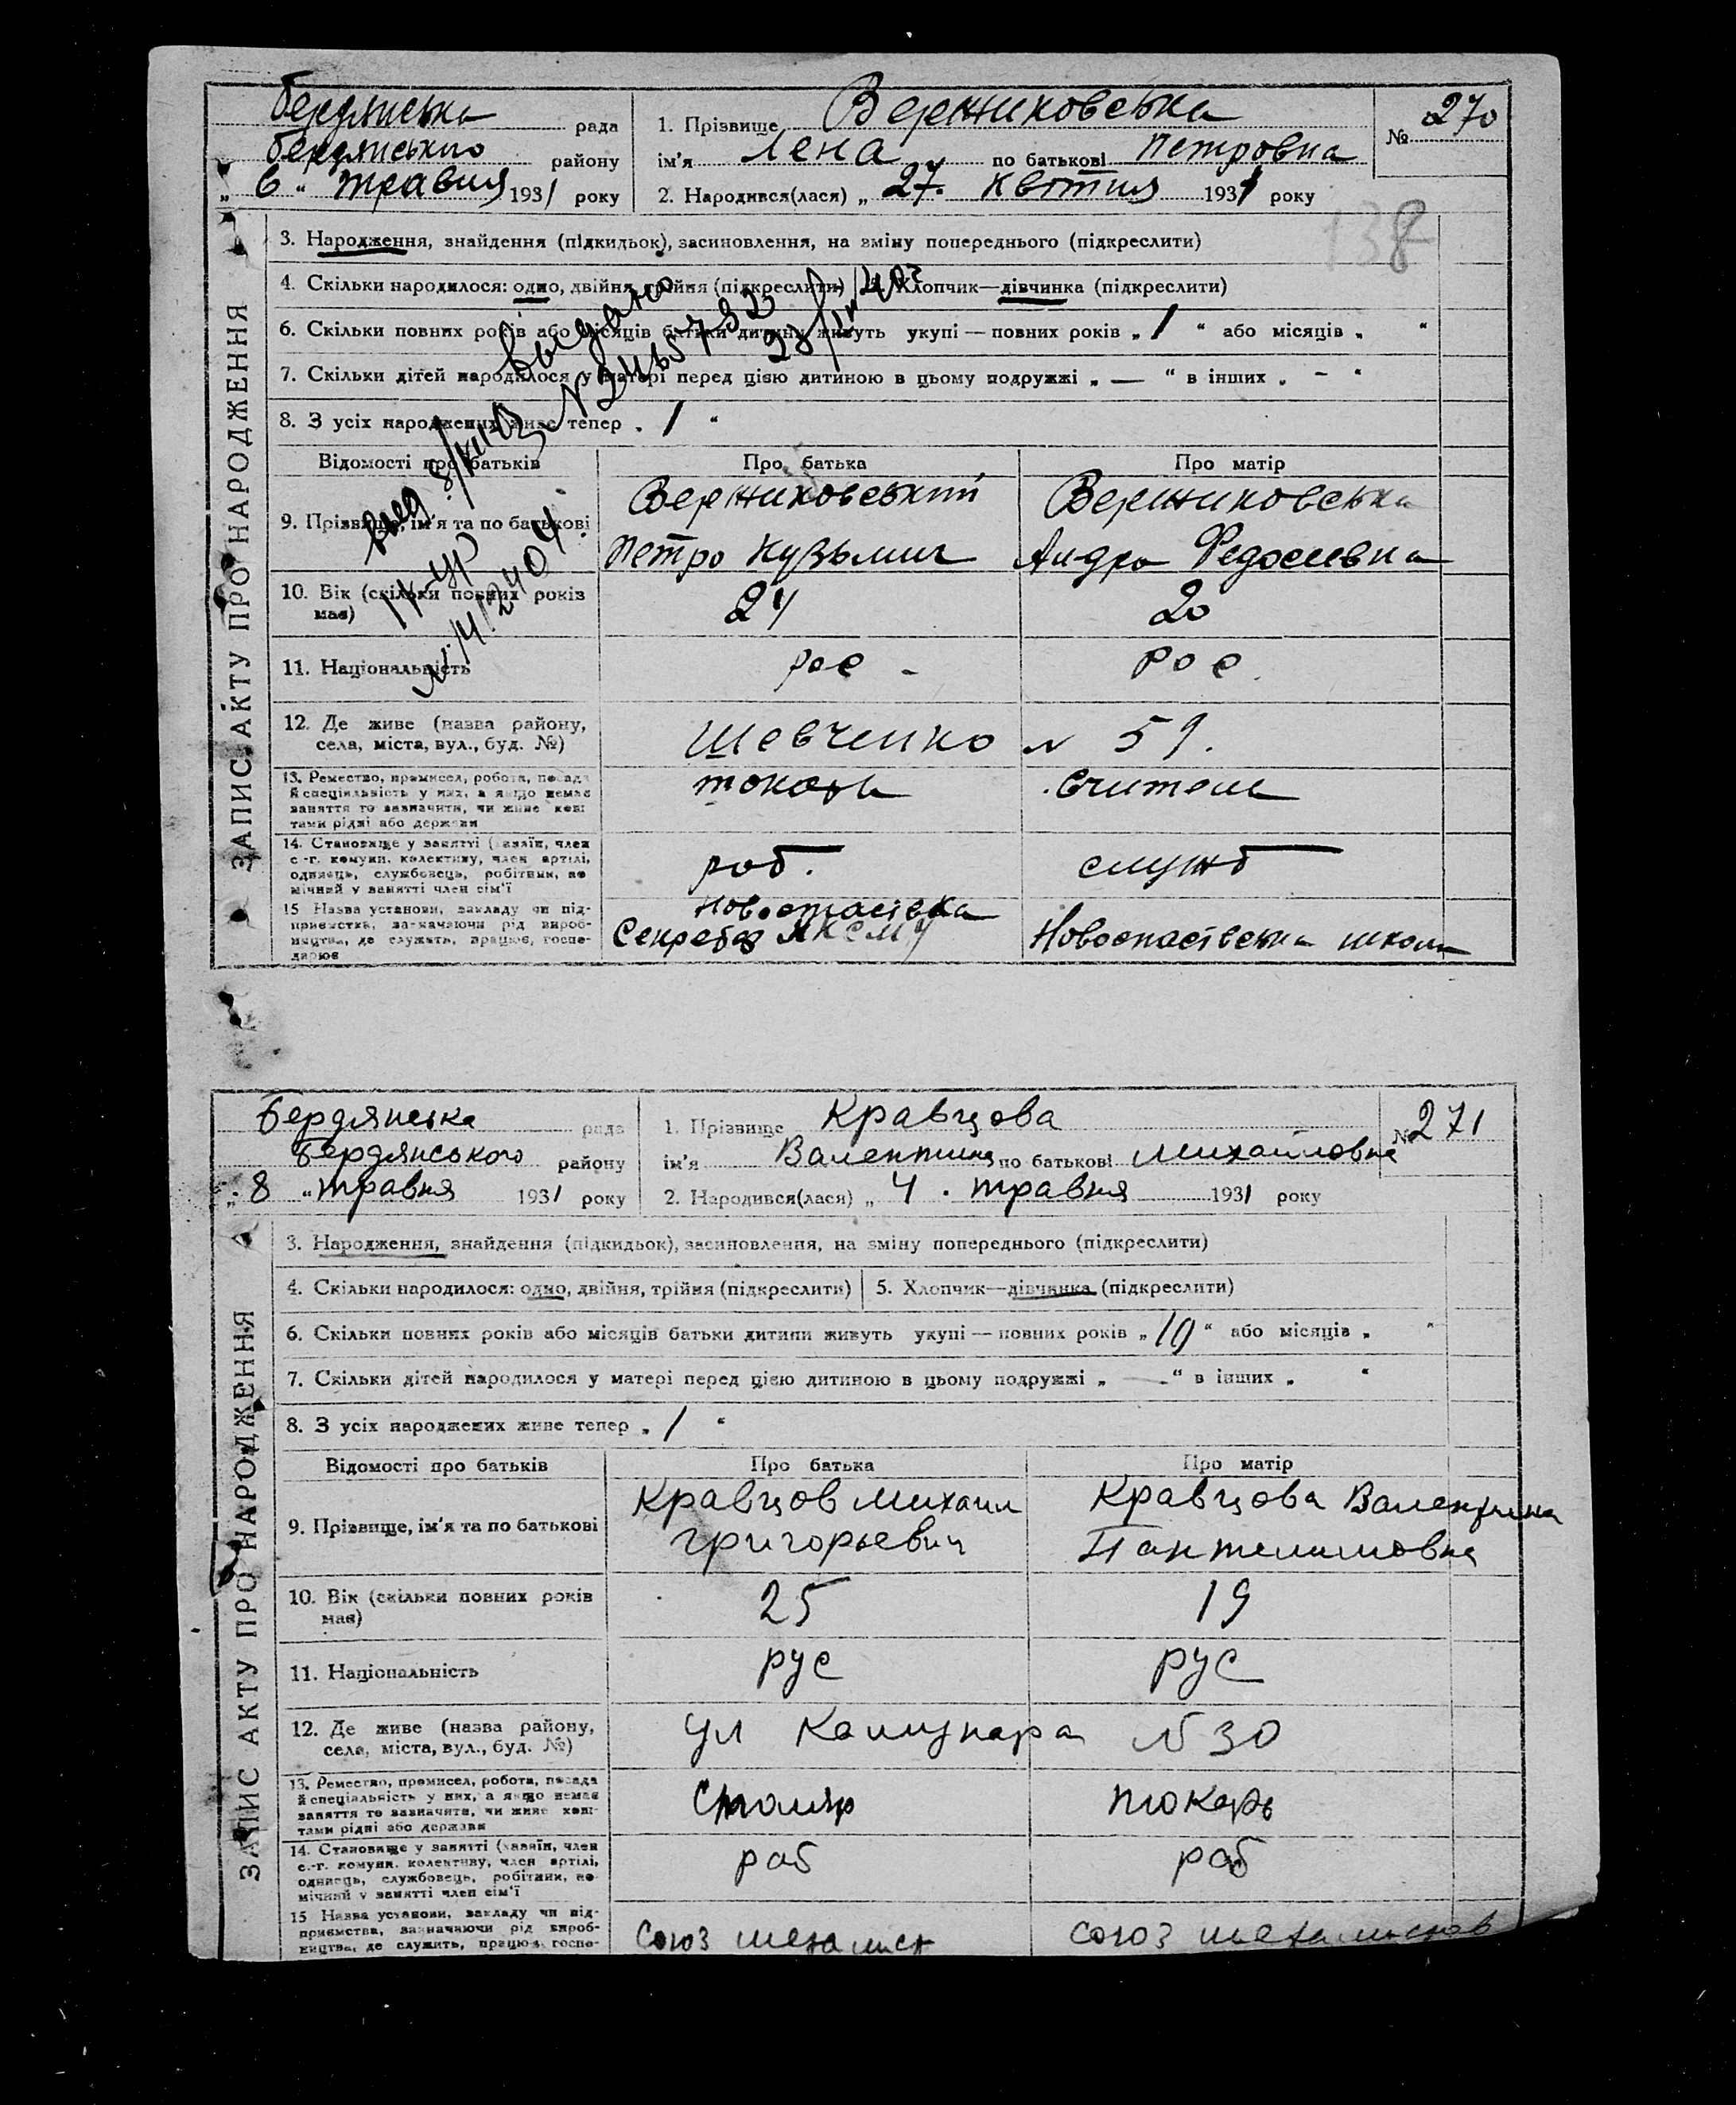 Бердянська рада
Бердянського району
„ 6 “ травня 1931 року
1. Прізвище Вержиковська
ім'я Лена по батькові Петровна
2. Народився(лася) „ 27. квітня 1931 року
№ 270
138
ЗАПИС АКТУ ПРО НАРОДЖЕННЯ
3. Народження, знайдення (підкидьок), засиновлення, на зміну попереднього (підкреслити)
4. Скільки народилося: одно, двійня, трійня (підкреслити) Хлопчик—дівчинка (підкреслити)
6. Скільки повних років або місяців батьки дитини живуть укупі — повних років „ 1 “ або місяців „ “
7. Скільки дітей народилося у матері перед цією дитиною в цьому подружжі „ — “ в інших „ - “
8. З усіх народжених живе тепер „ 1 “
Выдано
Відомості про батьків Про батька Про матір
9. Прізвище, ім'я та по батькові
Вержиковський Вержиковська
Петро Кузьмич Федосеевна
10. Вік (скільки повних років має) 24 20
11. Національність рос - рос.
12. Де живе (назва району, села, міста, вул., буд. №) Шевченко № 59.
13. Ремество, промисел, робота, посада
й спеціяльність у них, а якщо немає
заняття то зазначити, чи живе кош-
тами рідні або держави
токарь вчитель
14. Становище у занятті (хазяїн, член
с.-г. комуни, колективу, член артілі,
одинець, службовець, робітник, по-
мічний у занятті член сім'ї
роб. служб
15 Назва установи, закладу чи під-
приємства, зазначаючи рід вироб-
ництва, де служить, працює, госпо-
дарює
Новоспасівка
Секретар ЛКСМУ Новоспасівська школа
Бердянська рада
Бердянського району
„ 8 “ травня 1931 року
1. Прізвище Кравцова
ім'я Валентина по батькові Михайловна
2. Народився(лася) „ 4. травня 1931 року
№ 271
ЗАПИС АКТУ ПРО НАРОДЖЕННЯ
3. Народження, знайдення (підкидьок), засиновлення, на зміну попереднього (підкреслити)
4. Скільки народилося: одно, двійня, трійня (підкреслити) 5. Хлопчик—дівчинка (підкреслити)
6. Скільки повних років або місяців батьки дитини живуть укупі — повних років „ “ або місяців „ “
7. Скільки дітей народилося у матері перед цією дитиною в цьому подружжі „ — “ в інших „ “
8. З усіх народжених живе тепер „ 1 “
Відомості про батьків Про батька Про матір
9. Прізвище, ім'я та по батькові
Кравцов Михаил Кравцова Валентина
Григорьевич Пантелимовна
10. Вік (скільки повних років має) 25 19
11. Національність рус рус
12. Де живе (назва району, села, міста, вул., буд. №) ул Комунара № 30
13. Ремество, промисел, робота, посада
й спеціяльність у них, а якщо немає
заняття то зазначити, чи живе кош-
тами рідні або держави
Столяр токарь
14. Становище у занятті (хазяїн, член
с.-г. комуни, колективу, член артілі,
одинець, службовець, робітник, по-
мічний у занятті член сім'ї
раб раб
15 Назва установи, закладу чи під-
приємства, зазначаючи рід вироб-
ництва, де служить, працює, госпо-
Союз металист Союз металистов